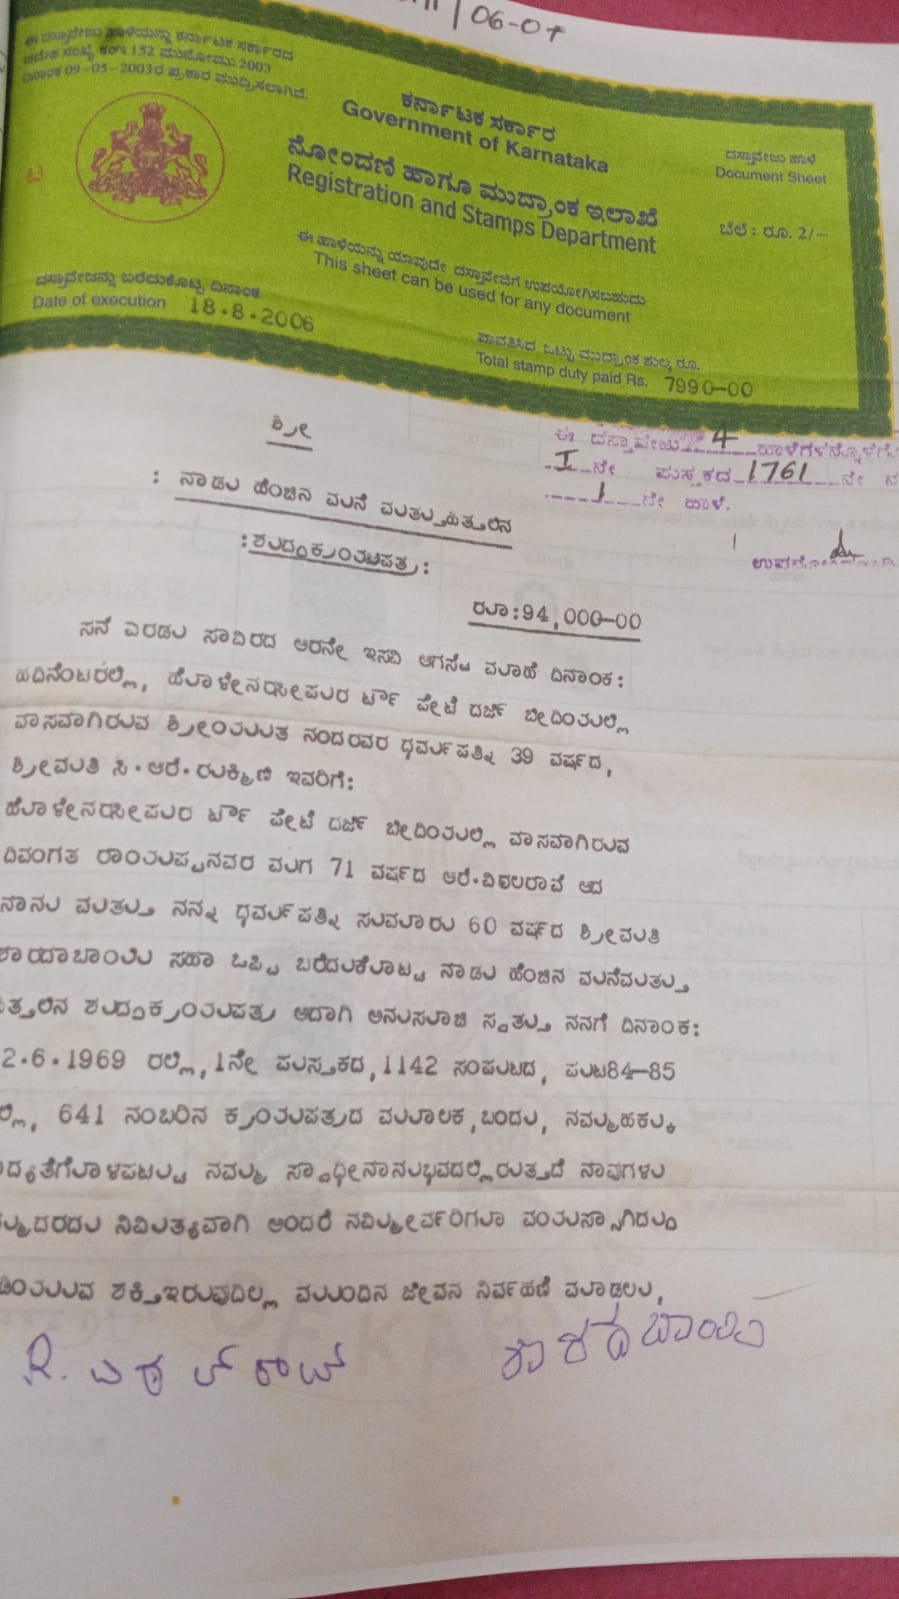 06-07
ಈ ದಸ್ತಾವೇಜು ಹಾಳೆಯನ್ನು ಕರ್ನಾಟಕ ಸರ್ಕಾರದ
ಆದೇಶ ಸಂಖ್ಯೆ ಕಂಇ 152 ಮುನೋಮು 2003
ದಿನಾಂಕ 09-05-2003ರ ಪ್ರಕಾರ ಮುದ್ರಿಸಲಾಗಿದೆ.
ಕರ್ನಾಟಕ ಸರ್ಕಾರ
Government of Karnataka
ದಸ್ತಾವೇಜು ಹಾಳೆ
Document Sheet
ನೋಂದಣಿ ಹಾಗೂ ಮುದ್ರಾಂಕ ಇಲಾಖೆ
Registration and Stamps Department
ಬೆಲೆ : ರೂ. 2/-
ಈ ಹಾಳೆಯನ್ನು ಯಾವುದೇ ದಸ್ತಾವೇಜಿಗೆ ಉಪಯೋಗಿಸಬಹುದು
This sheet can be used for any document
ದಸ್ತಾವೇಜನ್ನು ಬರೆದುಕೊಟ್ಟ ದಿನಾಂಕ
Date of execution 18.8.2006
ಪಾವತಿಸಿದ ಒಟ್ಟು ಮುದ್ರಾಂಕ ಶುಲ್ಕ ರೂ.
Total stamp duty paid Rs. 7990-00
ಈ ದಸ್ತಾವೇಜು 4 ಹಾಳೆಗಳನ್ನೊಳಗೊ
I ನೇ ಪುಸ್ತಕದ 1761 ನೇ ನ
1 ನೇ ಹಾಳೆ.
ಶ್ರೀ
: ನಾಡು ಹೆಂಚಿನ ಮನೆ ಮತ್ತುಹಿತ್ತಲಿನ
:ಶುದ್ಧಕ್ರಯಪತ್ರ:
ರೂ:94,000-00
ಸನೆ ಎರಡು ಸಾವಿರದ ಆರನೇ ಇಸವಿ ಆಗಸ್ಟ್ ಮಾಹೆ ದಿನಾಂಕ:
ಹದಿನೆಂಟರಲ್ಲಿ, ಹೊಳೇನರಸೀಪುರ ಟೌನ್ ಪೇಟೆ ದರ್ಜಿ ಬೀದಿಯಲ್ಲಿ
ವಾಸವಾಗಿರುವ ಶ್ರೀಯುತ ನಂದರವರ ಧರ್ಮಪತ್ನಿ 39 ವರ್ಷದ,
ಶ್ರೀಮತಿ ಸಿ.ಆರ್.ರುಕ್ಮಿಣಿ ಇವರಿಗೆ:
ಹೊಳೇನರಸೀಪುರ ಟೌನ್ ಪೇಟೆ ದರ್ಜಿ ಬೀದಿಯಲ್ಲಿ ವಾಸವಾಗಿರುವ
ದಿವಂಗತ ರಾಯಪ್ಪನವರ ಮಗ 71 ವರ್ಷದ ಆರ್.ವಿಠಲರಾವ್ ಆದ
ನಾನು ಮತ್ತು ನನ್ನ ಧರ್ಮಪತ್ನಿ ಸುಮಾರು 60 ವರ್ಷದ ಶ್ರೀಮತಿ
ಶಾರದಾಬಾಯಿ ಸಹಾ ಒಪ್ಪಿ ಬರೆದುಕೊಟ್ಟ ನಾಡು ಹೆಂಚಿನ ಮನೆಮತ್ತು
ಹಿತ್ತಲಿನ ಶುದ್ಧಕ್ರಯಪತ್ರ ಅದಾಗಿ ಅನುಸೂಚಿ ಸ್ವತ್ತು ನನಗೆ ದಿನಾಂಕ:
2.6.1969 ರಲ್ಲಿ, 1ನೇ ಪುಸ್ತಕದ, 1142 ಸಂಪುಟದ, ಪುಟ84-85
ಲ್ಲಿ, 641 ನಂಬರಿನ ಕ್ರಯಪತ್ರದ ಮೂಲಕ, ಬಂದು, ನಮ್ಮಹಕ್ಕು
ದ್ಯತೆಗೊಳಪಟ್ಟು ನಮ್ಮ ಸ್ವಾಧೀನಾನುಭವದಲ್ಲಿರುತ್ತದೆ ನಾವುಗಳು
ನಿಮಿತ್ಯವಾಗಿ ಅಂದರೆ ನಮ್ಮೀರ್ವರಿಗೂ ವಯಸ್ಸಾಗಿದ್ದು
ಡಿಯುವ ಶಕ್ತಿಇರುವುದಿಲ್ಲ ಮುಂದಿನ ಜೀವನ ನಿರ್ವಹಣೆ ಮಾಡಲು,
R. ವಿಠಲ್ ರಾವ್
ಶಾರದಬಾಯಿ